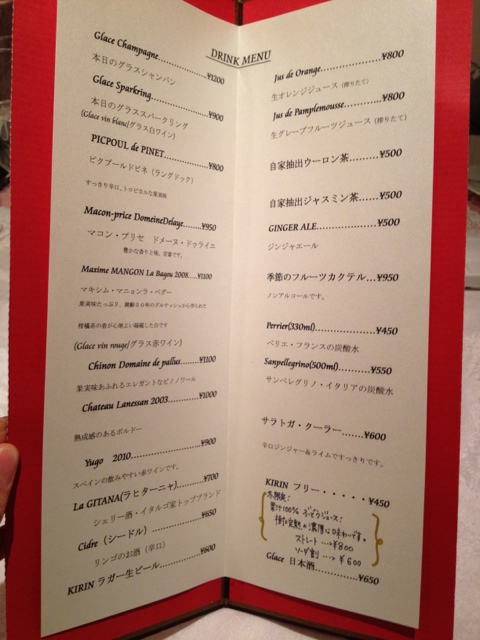 DRINK MENU
Glace Champagne..............¥1200
本日のグラスシャンパン
Glace Sparkring..............¥900
本日のグラススパークリング
(Glace vin blanc)グラス(白ワイン)
PICPOUL de PINET..........¥800
ピクプールドピネ（ラングドック）
すっきり辛口、トロピカルな果実味
Macon-price DomeineDelaye........¥950
マコン・プリセ ドメーヌ・ドゥライエ
豊かな香りと味、定番です。
Maxime MANGON La Bagou 2008....¥1100
マキシム・マニョンラ・ベグー
(Glace vin rouge)グラス赤ワイン)
Chinon Domaine de pallus......¥1100
果実味あふれるエレガントなピノノワール
Chateau Lanessan 2003...........¥1000
熟成感のあるボルドー
Yugo 2010.................¥900
スペインの飲みやすい赤ワインです。
La GITANA(ラヒターニャ)........¥700
シェリー酒・イタルゴ家トップブランド
Cidre（シードル）..............¥650
リンゴのお酒（辛口）
KIRIN ラガー生ビール............¥600
Jus de Orange................¥800
生オレンジジュース（搾りたて）
Jus de Pamplemousse.........¥800
生グレープフルーツジュース（搾りたて）
自家抽出ウーロン茶.........¥500
自家抽出ジャスミン茶......¥500
GINGER ALE..................¥500
ジンジャエール
季節のフルーツカクテル...¥950
ノンアルコールです。
Perrier(330ml)...............¥450
ペリエ・フランスの炭酸水
Sanpellegrino(500ml).........¥550
サンペレグリノ・イタリアの炭酸水
サラトガ・クーラー.......¥600
辛口ジンジャー&ライムですっきりです。
KIRIN フリー・・・・・¥450
果汁100% ぶどうジュース！
樹で完熟の濃厚な味わいです。
ストレート …→¥800
ソーダ割 …→¥600
Glace 日本酒...............¥650